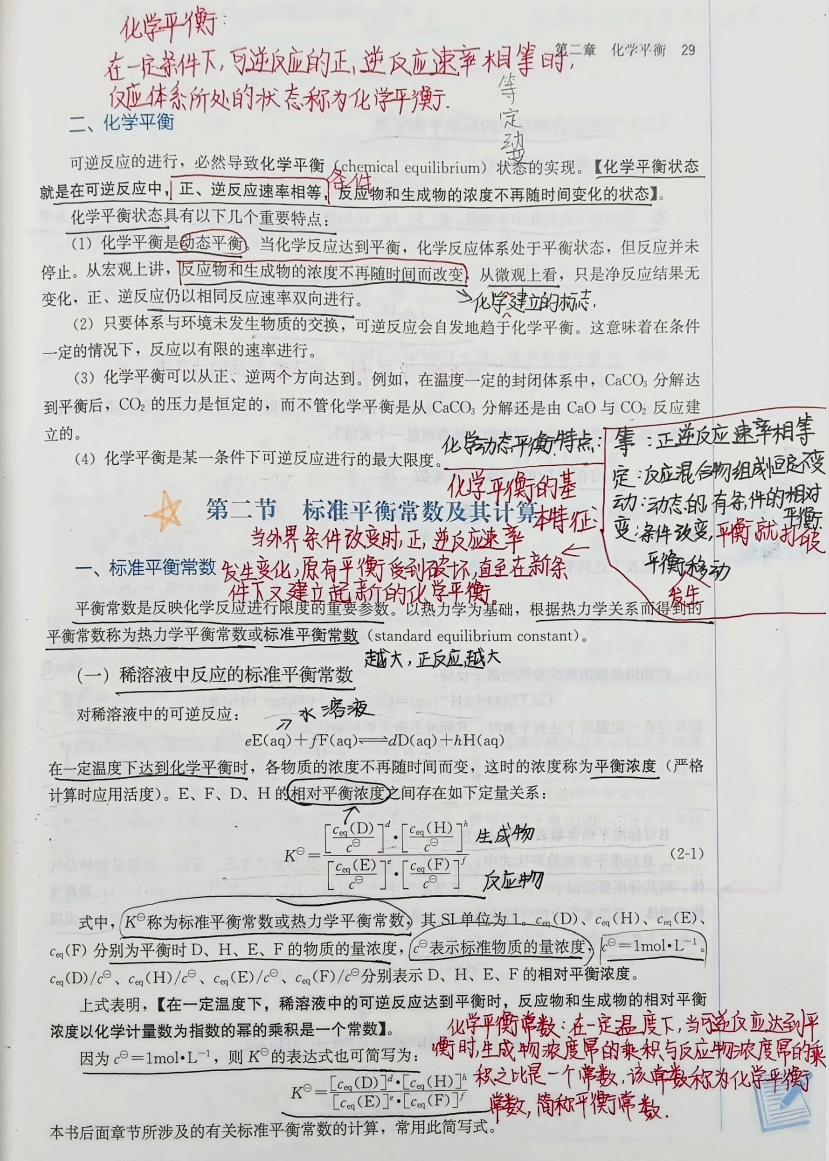 化学平衡:
第二章 化学平衡 29
在一定条件下,可逆反应的正、逆反应速率相等时,
反应体系所处的状态称为化学平衡.
等
定
动
变
二、化学平衡
可逆反应的进行，必然导致化学平衡（chemical equilibrium）状态的实现。【化学平衡状态
条件
就是在可逆反应中，正、逆反应速率相等，反应物和生成物的浓度不再随时间变化的状态】。
化学平衡状态具有以下几个重要特点：
（1）化学平衡是动态平衡。当化学反应达到平衡，化学反应体系处于平衡状态，但反应并未
停止。从宏观上讲，反应物和生成物的浓度不再随时间而改变，从微观上看，只是净反应结果无
变化，正、逆反应仍以相同反应速率双向进行。
化学建立的标志.
（2）只要体系与环境未发生物质的交换，可逆反应会自发地趋于化学平衡。这意味着在条件
一定的情况下，反应以有限的速率进行。
（3）化学平衡可以从正、逆两个方向达到。例如，在温度一定的封闭体系中，CaCO₃ 分解达
到平衡后，CO₂ 的压力是恒定的，而不管化学平衡是从 CaCO₃ 分解还是由 CaO 与 CO₂ 反应建
立的。
（4）化学平衡是某一条件下可逆反应进行的最大限度。
化学动态平衡特点:
等:正逆反应速率相等
定:反应混合物组成恒定不变
动:动态的 有条件的相对
平衡
变:条件改变,平衡就打破
平衡移动
发生
化学平衡的基
本特征:
第二节 标准平衡常数及其计算
当外界条件改变时,正,逆反应速率
发生变化,原有平衡受到破坏,直至在新条
件下又建立起新的化学平衡。
一、标准平衡常数
平衡常数是反映化学反应进行限度的重要参数。以热力学为基础，根据热力学关系而得到的
平衡常数称为热力学平衡常数或标准平衡常数（standard equilibrium constant）。
越大,正反应越大
（一）稀溶液中反应的标准平衡常数
对稀溶液中的可逆反应：
水溶液
eE(aq)+fF(aq)⇌dD(aq)+hH(aq)
在一定温度下达到化学平衡时，各物质的浓度不再随时间而变，这时的浓度称为平衡浓度（严格
计算时应用活度）。E、F、D、H 的相对平衡浓度之间存在如下定量关系：
K⊖=[ceq(D)/c⊖]ᵈ·[ceq(H)/c⊖]ʰ / [ceq(E)/c⊖]ᵉ·[ceq(F)/c⊖]ᶠ (2-1)
生成物
反应物
式中，K⊖称为标准平衡常数或热力学平衡常数，其 SI 单位为 1。ceq(D)、ceq(H)、ceq(E)、
ceq(F) 分别为平衡时 D、H、E、F 的物质的量浓度，c⊖表示标准物质的量浓度，c⊖=1mol·L⁻¹。
ceq(D)/c⊖、ceq(H)/c⊖、ceq(E)/c⊖、ceq(F)/c⊖分别表示 D、H、E、F 的相对平衡浓度。
上式表明，【在一定温度下，稀溶液中的可逆反应达到平衡时，反应物和生成物的相对平衡
浓度以化学计量数为指数的幂的乘积是一个常数】。
因为 c⊖=1mol·L⁻¹，则 K⊖的表达式也可简写为：
K⊖=[ceq(D)]ᵈ·[ceq(H)]ʰ / [ceq(E)]ᵉ·[ceq(F)]ᶠ
化学平衡常数:在一定温度下,当可逆反应达到平
衡时,生成物浓度幂的乘积与反应物浓度幂的乘
积之比是一个常数,该常数称为化学平衡
常数,简称平衡常数.
本书后面章节所涉及的有关标准平衡常数的计算，常用此简写式。